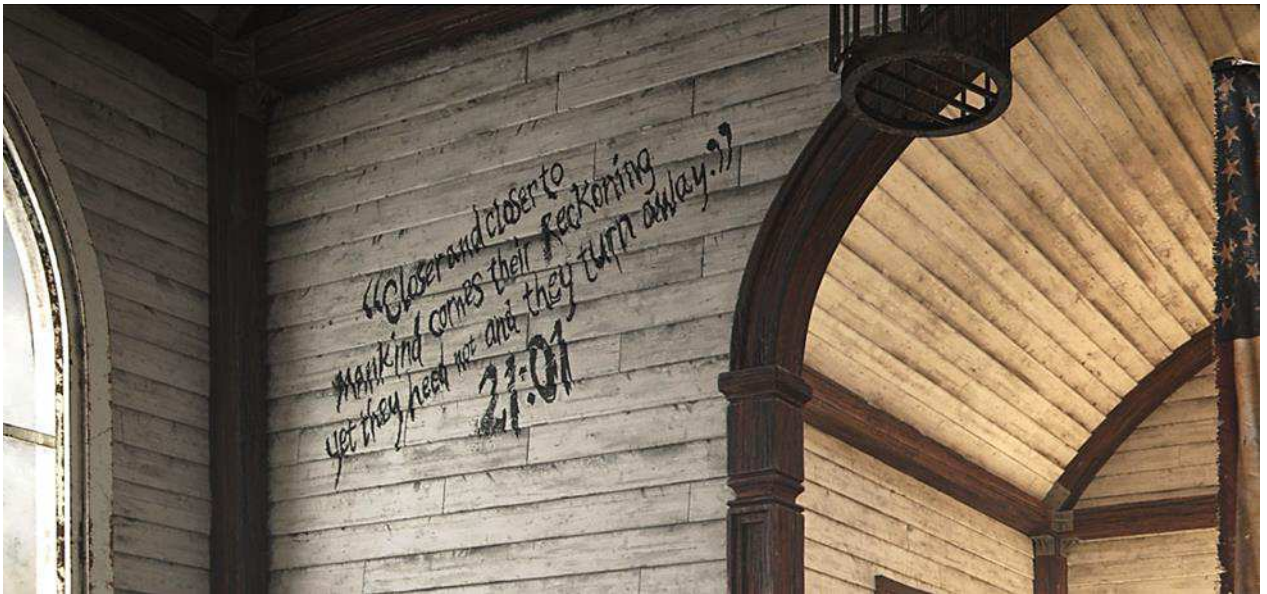 “Closer and closer to
Mankind comes their Reckoning
yet they heed not and they turn away.”
21:01